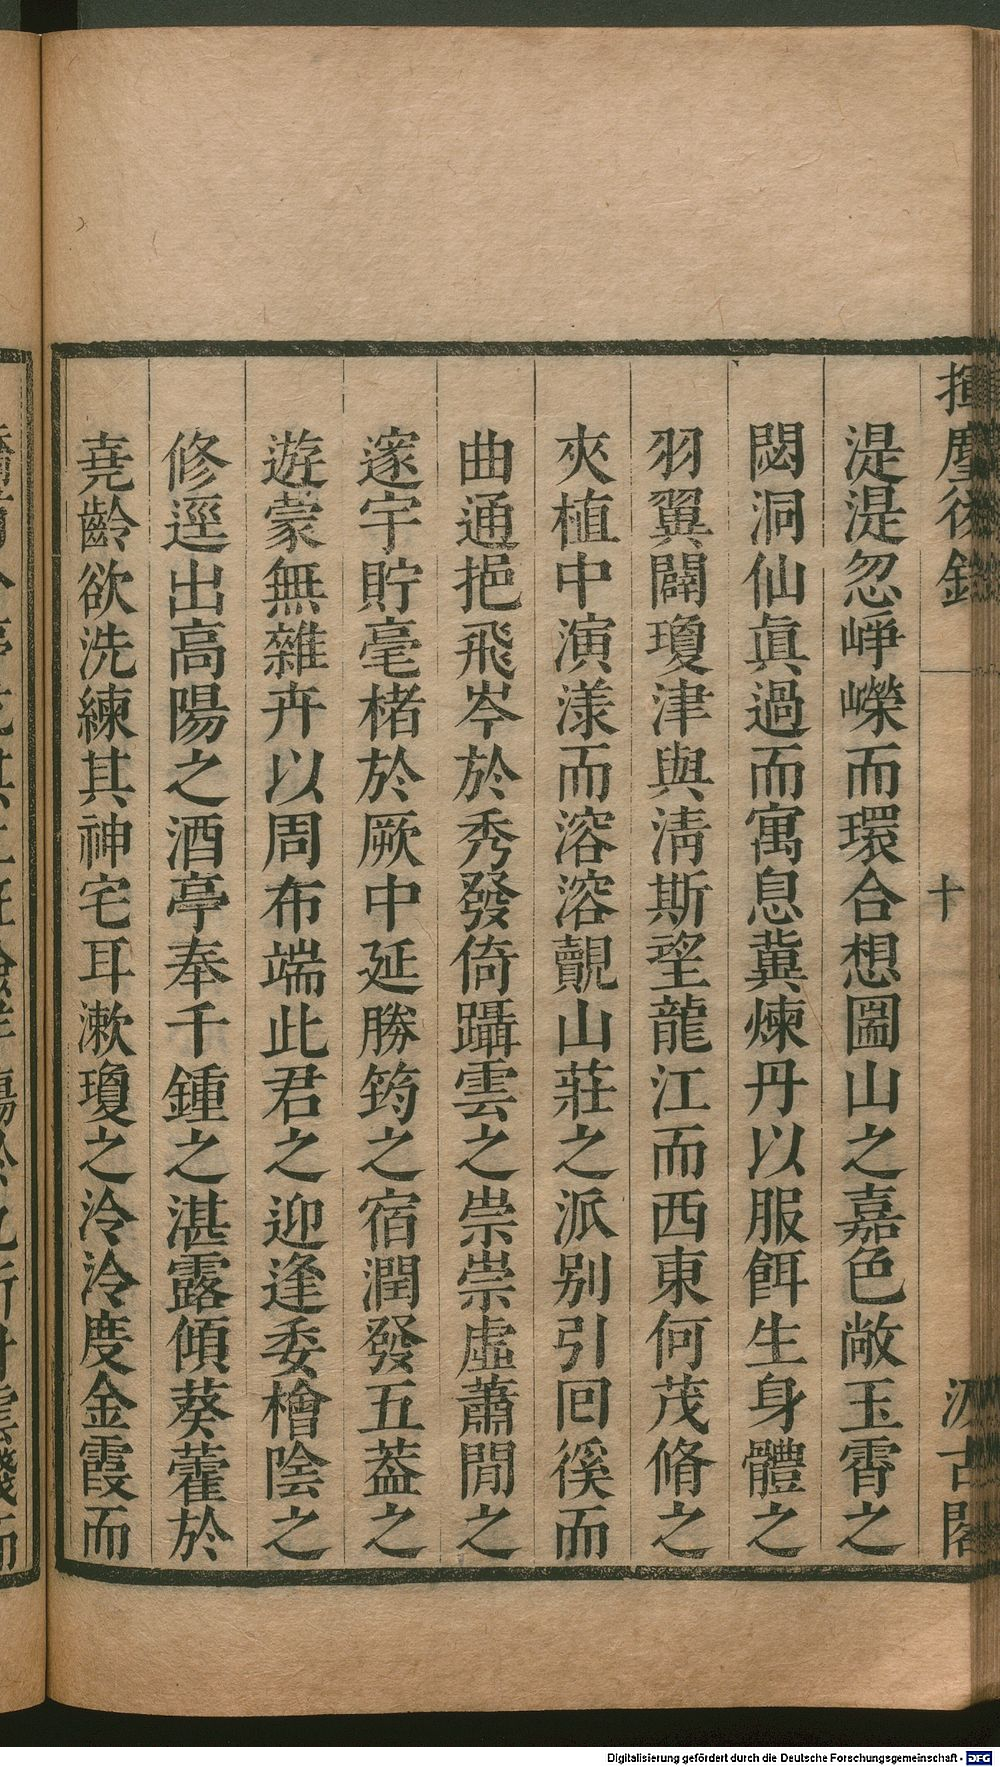 揮麈後錄
十
汲古閣
湜湜忽崢嶸而環合想圖山之嘉色敞玉霄之
閟洞仙眞過而寓息冀煉丹以服餌生身體之
羽翼闢瓊津與淸斯望龍江而西東何茂脩之
夾植中演漾而溶溶覿山莊之派别引回徯而
曲通挹飛岑於秀發倚躡雲之崇崇虛蕭閒之
邃宇貯毫楮於厥中延勝筠之宿潤發五蓋之
遊蒙無雜卉以周布端此君之迎逢委檜陰之
修逕出高陽之酒亭奉千鍾之湛露傾葵藿於
堯齡欲洗練其神宅耳漱瓊之泠泠度金霞而